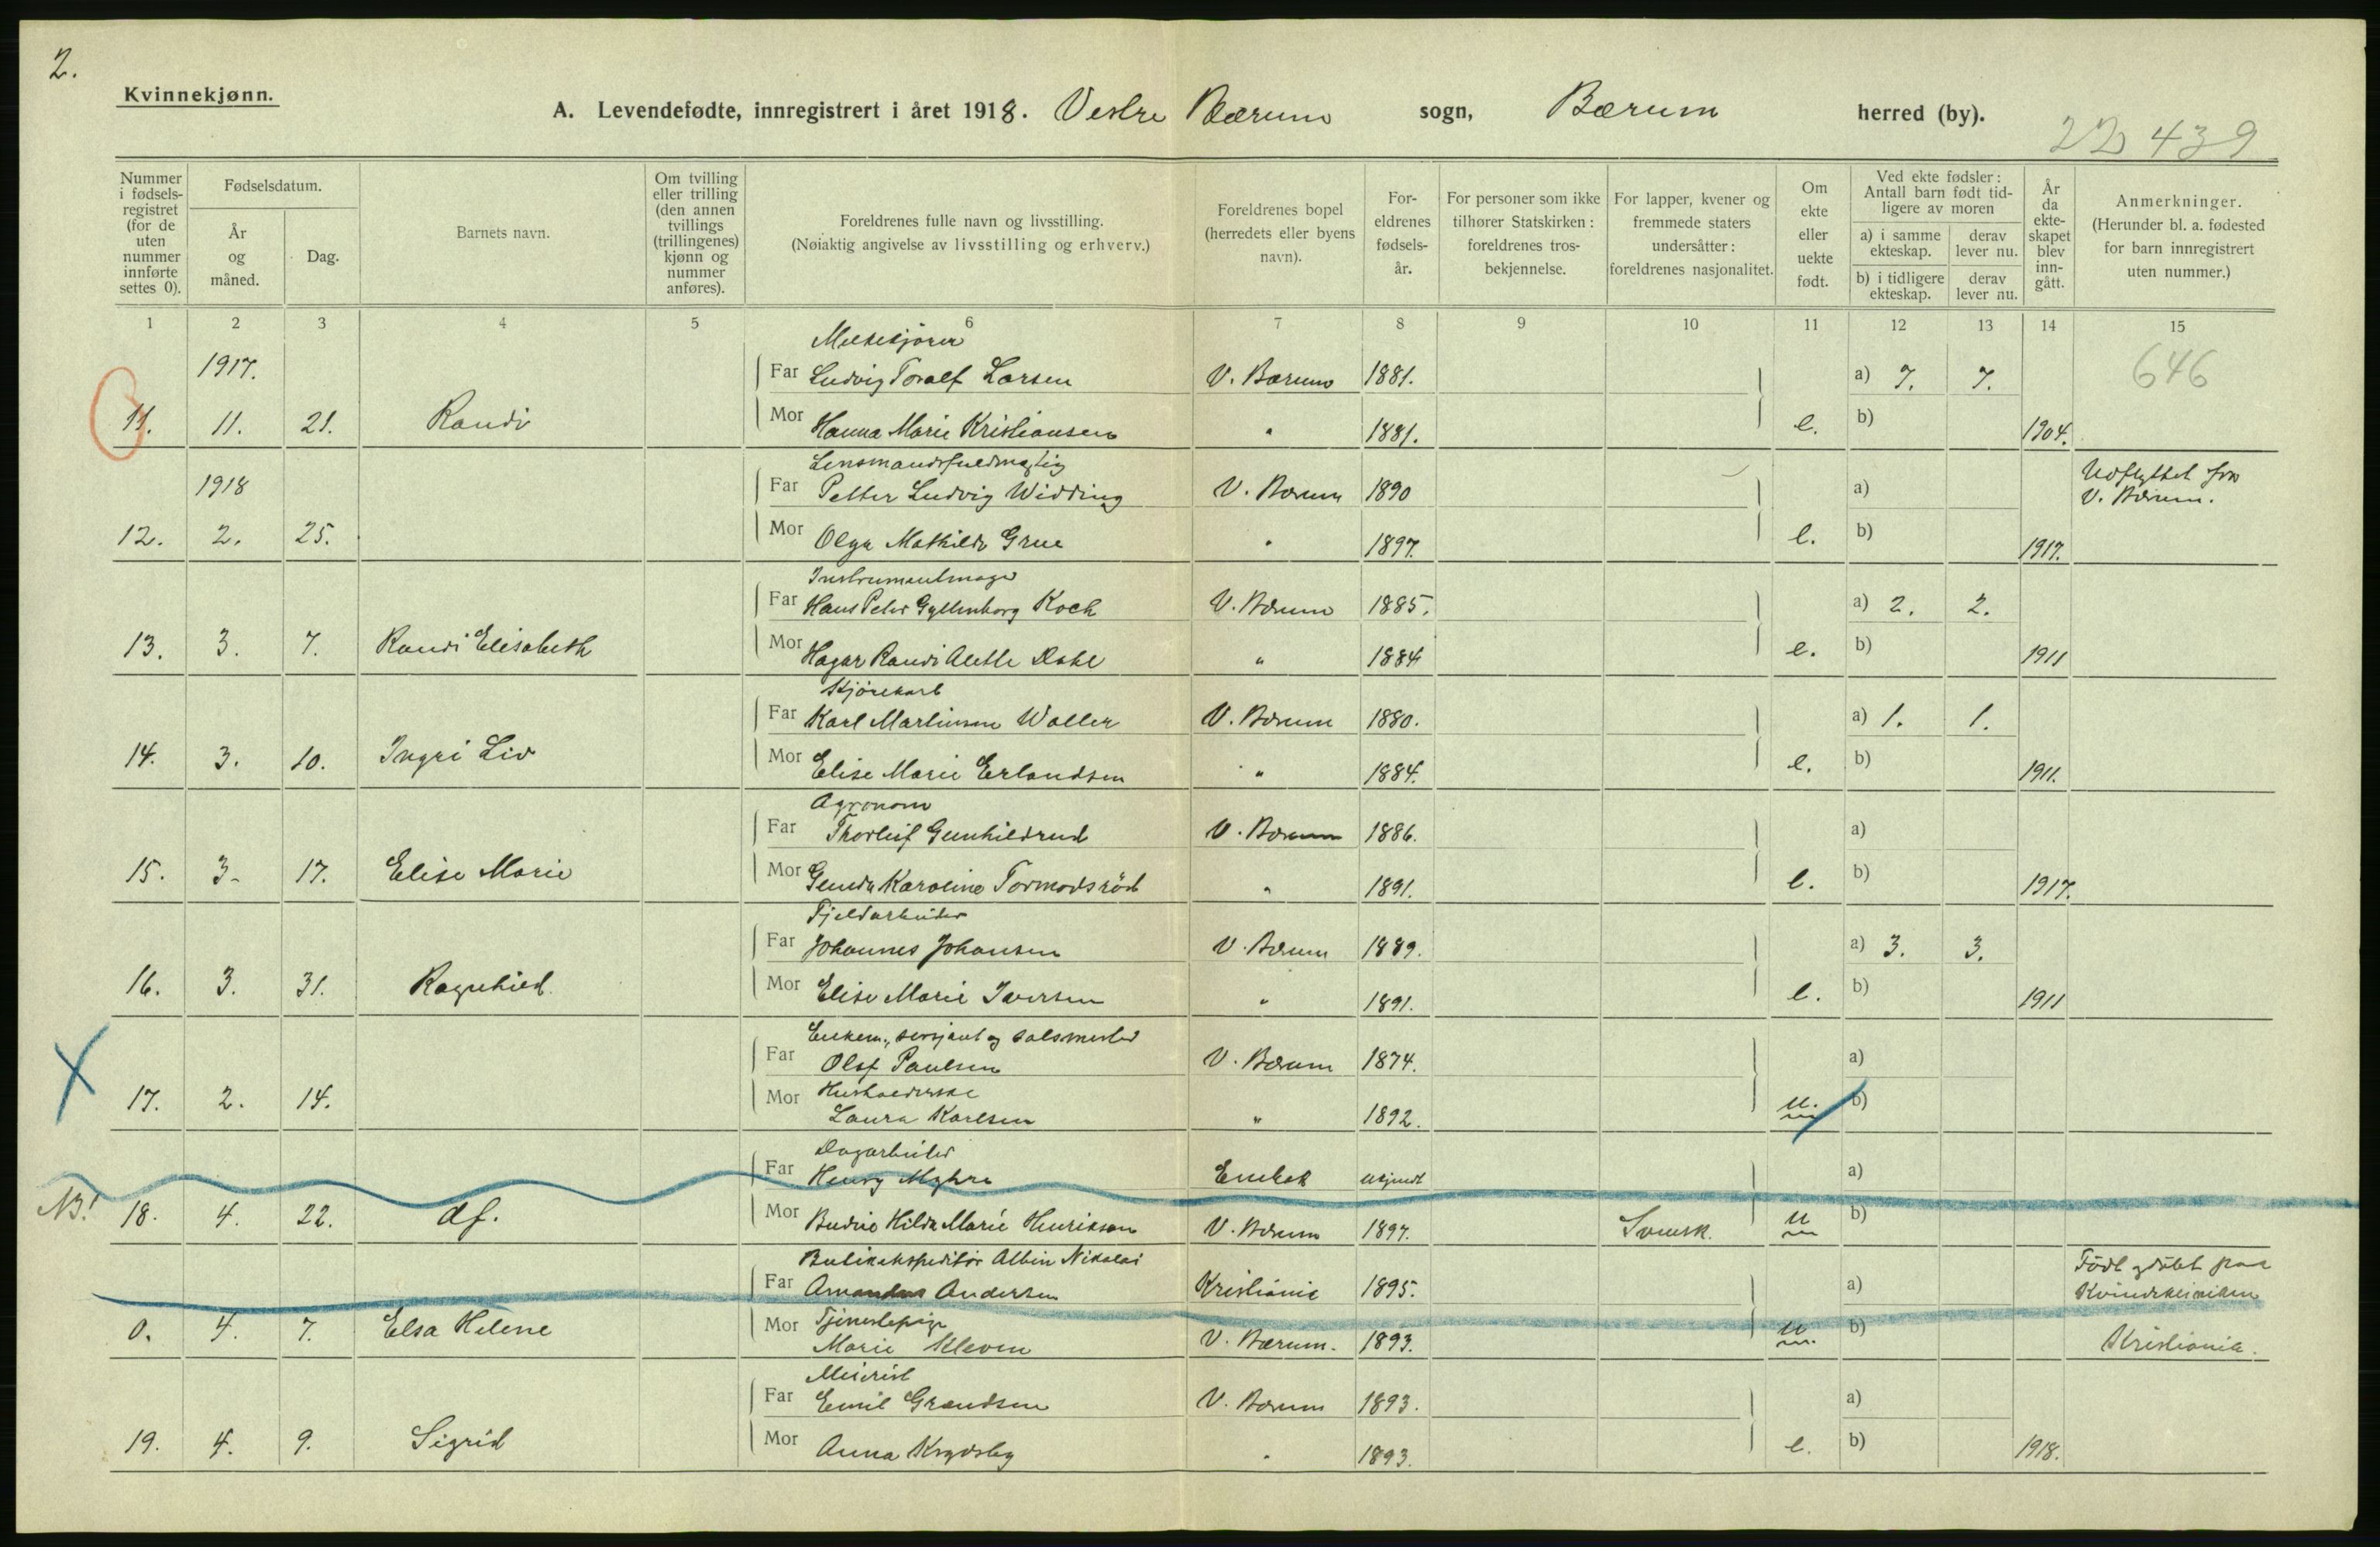 2.
Kvinnekjønn.
A. Levendefødte, innregistrert i året 1918. Vestre Bærum sogn, Bærum herred (by).
22 439
Nummer i fødsels-registret (for de uten nummer innførte settes 0).
Fødselsdatum.
År og måned.
Dag.
Barnets navn.
Om tvilling eller trilling (den annen tvillings (trillingenes) kjønn og nummer anføres).
Foreldrenes fulle navn og livsstilling.
(Nøiaktig angivelse av livsstilling og erhverv.)
Foreldrenes bopel (herredets eller byens navn).
For-eldrenes fødsels-år.
For personer som ikke tilhører Statskirken: foreldrenes tros-bekjennelse.
For lapper, kvener og fremmede staters undersåtter: foreldrenes nasjonalitet.
Om ekte eller uekte født.
Ved ekte fødsler: Antall barn født tid-ligere av moren
a) i samme ekteskap.
derav lever nu.
b) i tidligere ekteskap.
derav lever nu.
År da ekte-skapet blev inn-gått.
Anmerkninger.
(Herunder bl. a. fødested for barn innregistrert uten nummer.)
1 2 3 4 5 6 7 8 9 10 11 12 13 14 15
Melkekjører
1917. Far Ludvig Toralf Larsen V. Bærum 1881. a) 7. 7. 646
11. 11. 21. Randi Mor Hanna Marie Kristiansen " 1881. e. b) 1904.
Lensmandsfuldmægtig
1918 Far Petter Ludvig Widding V. Bærum 1890 a) Udflyttet fra
V. Bærum.
12. 2. 25. Mor Olga Mathilde Grue " 1897. e. b) 1917.
Instrumentmager
Far Hans Peter Gyllenborg Koch V. Bærum 1885. a) 2. 2.
13. 3. 7. Randi Elisabeth Mor Hagar Randi Alethe Dahl " 1884 e. b) 1911
Kjørekarl
Far Karl Martinsen Waller V. Bærum 1880. a) 1. 1.
14. 3. 10. Ingri Liv Mor Elise Marie Erlandsen " 1884. e. b) 1911.
Agronom
Far Thorleif Gunhildrud V. Bærum 1886. a)
15. 3. 17. Elise Marie Mor Gunda Karoline Tormodsrød " 1891. e. b) 1917.
Fjeldarbeider
Far Johannes Johansen V. Bærum 1889. a) 3. 3.
16. 3. 31. Ragnhild. Mor Elise Marie Iversen " 1891. e. b) 1911
Enkem., sersjant og salsmester
Far Olaf Paulsen V. Bærum 1874. a)
Husholderske
17. 2. 14. Mor Laura Karlsen " 1892. u. b)
Dagarbeider
Far Henry Myhre Enebak ukjendt a)
NB! 18. 4. 22. df. Mor Hilda Marie Henrikson V. Bærum 1897. Svensk. u b)
Butikekspeditør Albin Nikolai
Far Amandus Andersen Kristiania 1895. a) Født og døbt paa
Kvindeklinikken
Tjenestepige
0. 4. 7. Elsa Helene Mor Marie Kleven V. Bærum. 1893. u. b) Kristiania.
Meierist
Far Emil Grandsen V. Bærum 1893. a)
19. 4. 9. Sigrid Mor Anna Krydsby " 1893. e. b) 1918.